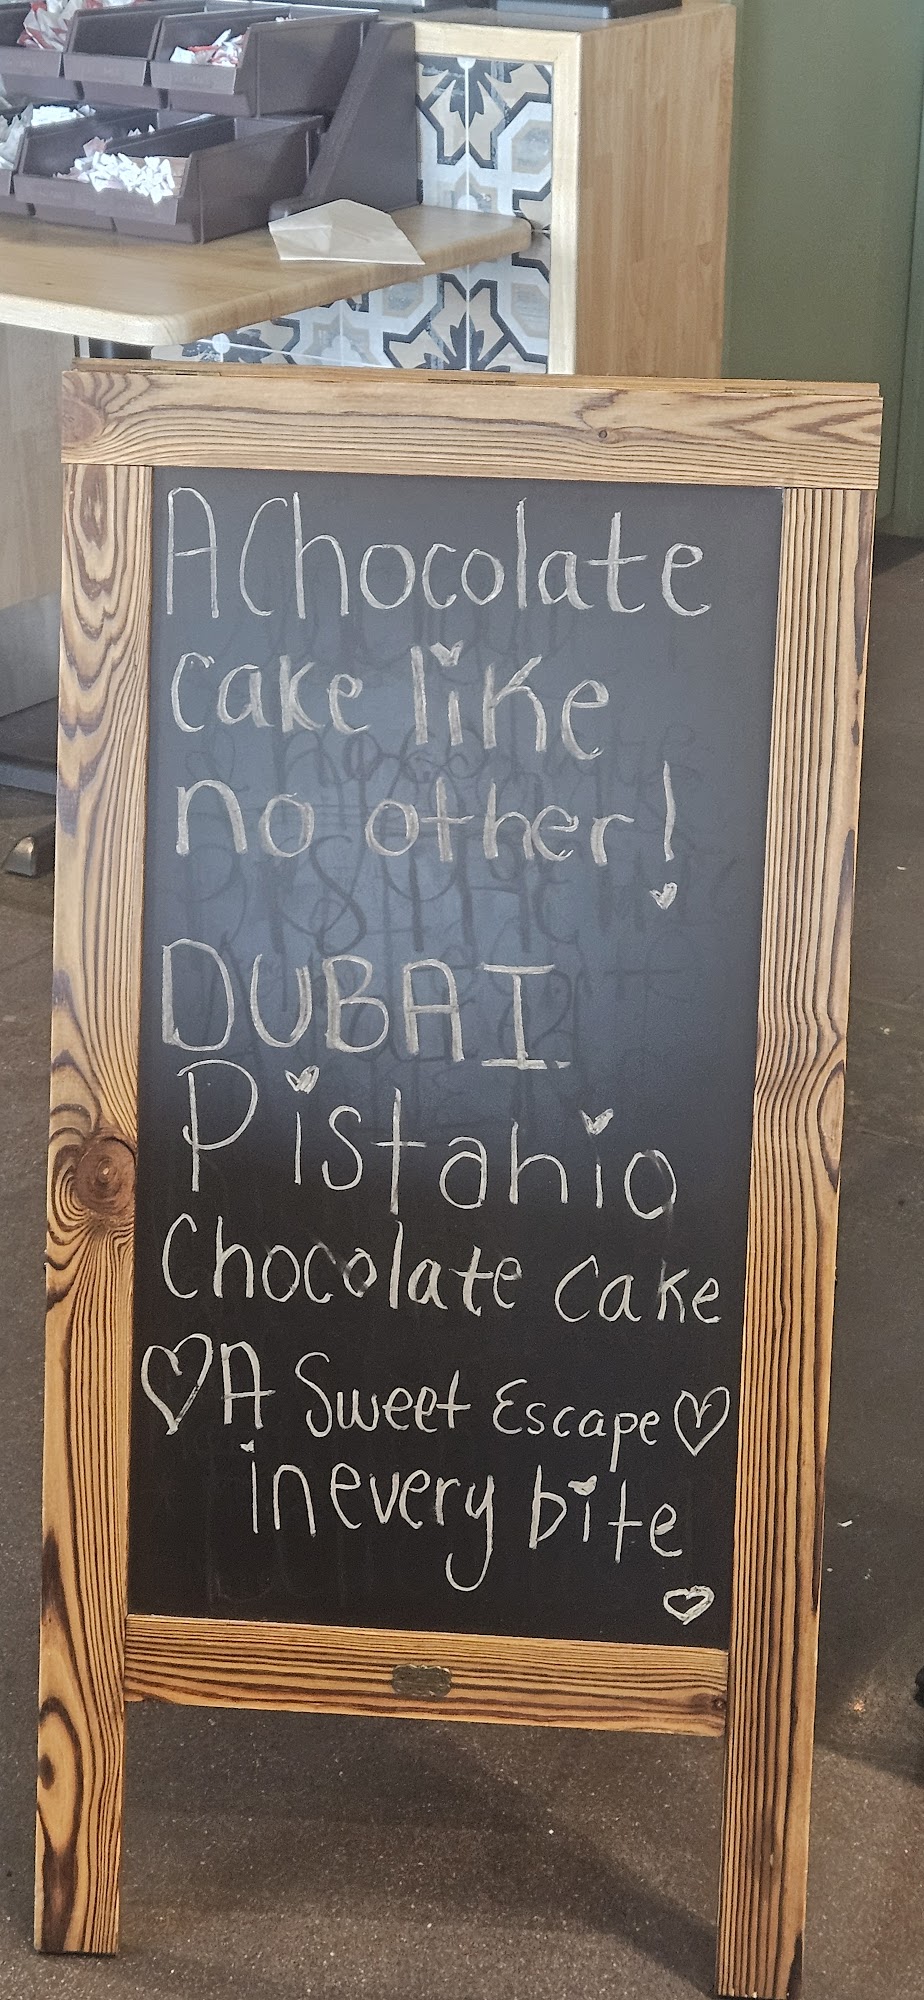 A Chocolate
cake like
no other!
DUBAI
Pistahio
Chocolate cake
A Sweet Escape
in every bite